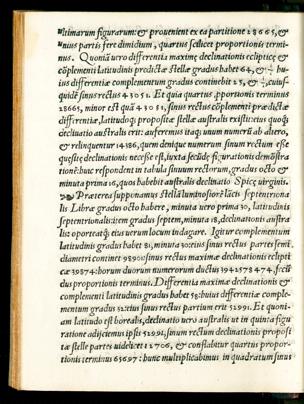 ultimarum figurarum: & proueniet ex ea partitione 28665, &
huius partis fere dimidium, quartus scilicet proportionis termi-
nus. Quoniã vero differentia maximę declinationis eclipticę &
cõplementi latitudinis prędictæ stellæ gradus habet 64, &
ius differentiæ complementum gradus continebit 25, & cuius-
quidẽ sinus rectus 43051. Et quia quartus, proportionis terminus
28665, minor est quã 43051, sinus rectus cõplementi præ dictæ
differentiæ, latitudoq; propositæ stellæ australis existit: ecius quoq;
declinatio australis erit: auferemus itaq; unum numerũ ab altero,
& relinquentur 14386, quem denique numerum sinum rectum esse
quęsitę declinationis necesse est, iuxta secũdę figurationis demõstra
tionẽ: huic respondent in tabula sinuum rectorum, gradus octo &
minuta prima 16, quos habebit australis declinatio Spicę virginis.
Præterea supponamus stellã luminosiorẽ lãcis septentriona
lis Libræ gradus octo habere, minuta vero prima 30, latitudinis
septentrionalis: item gradus septem, minuta 18, declinationis austra
lis: oporteatq; eius verum locum indagare. Igitur complementum
latitudinis gradus habet 81, minuta 30: eius sinus rectus partes semi
diametri continet 98901: sinus rectus maximæ declinationis eclipti
cæ 39874: horum duorum numerorum ductus 3942578474, secũ
dus proportionis terminus. Differentia maximæ declinationis &
complementi latitudinis gradus habet 58: huius differentiæ comple-
mentum gradus 32: eius sinus rectus partium erit 52991. Et quoni-
am latitudo est borealis, declinatio vero australis ut in quinta figu
ratione adijciemus ipsis 52991: sinum rectum declinationis proposi
tæ stellæ partes uidelicet 12706, & conflabitur quartus propor-
tionis terminus 65697: hunc multiplicabimus in quadratum sinus